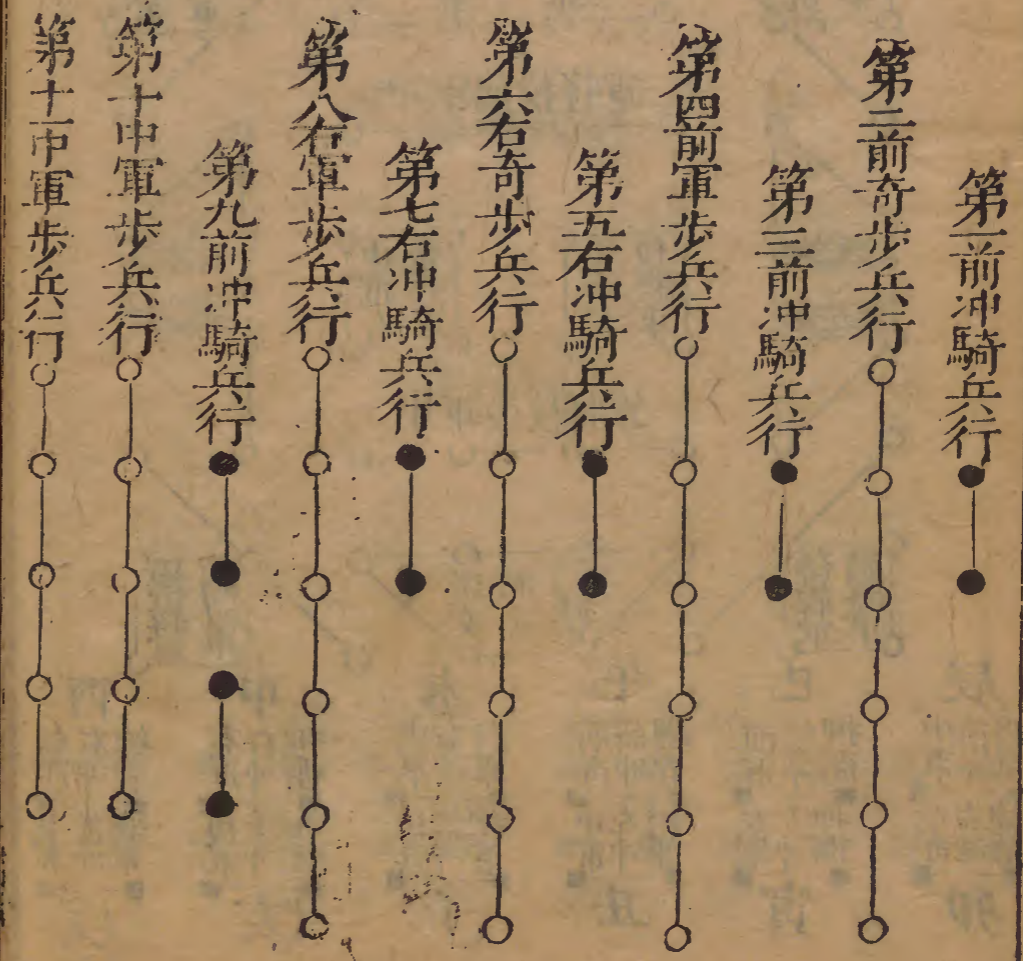 第一前冲騎兵行
第二前奇步兵行
第三前冲騎兵行
第四前軍步兵行
第五右冲騎兵行
第六右奇步兵行
第七右冲騎兵行
第八右軍步兵行
第九前冲騎兵行
第十中軍步兵行
第十一中軍步兵行